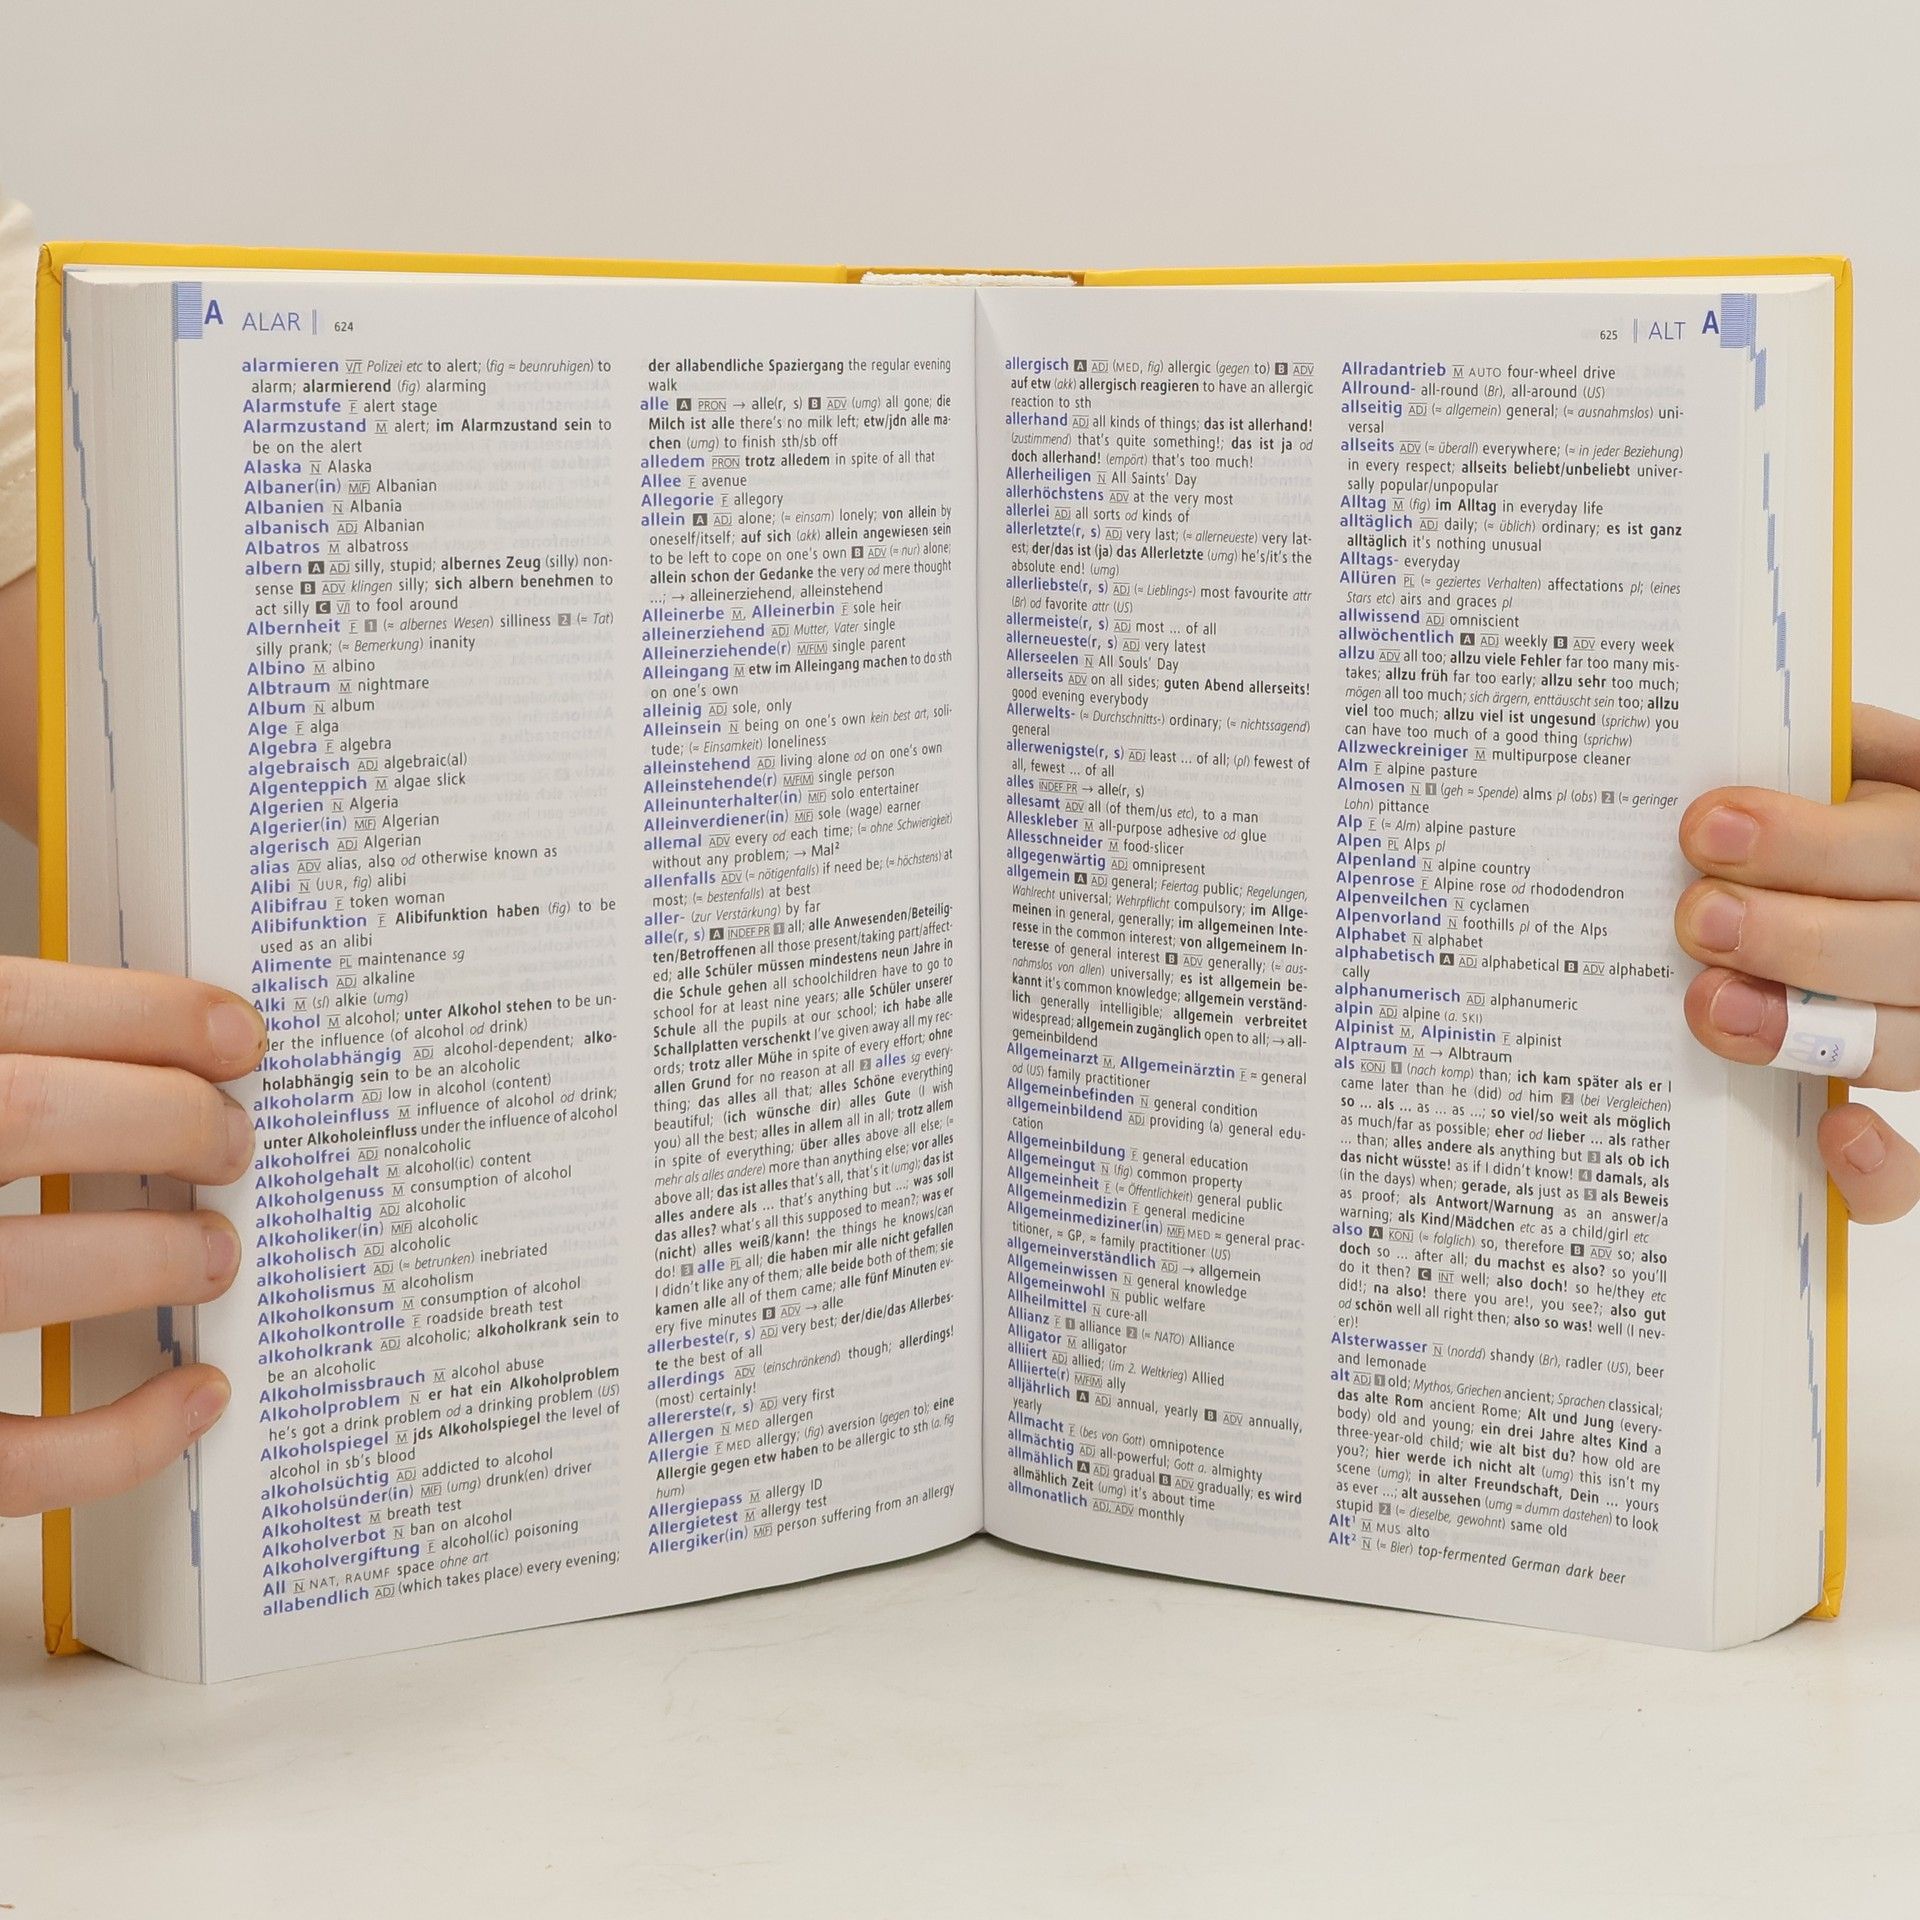 A ALAR 624
alarmieren V/T Polizei etc to alert; (fig ≈ beunruhigen) to
alarm; alarmierend (fig) alarming
Alarmstufe F alert stage
Alarmzustand M alert; im Alarmzustand sein to
be on the alert
Alaska N Alaska
Albaner(in) M(F) Albanian
Albanien N Albania
albanisch ADJ Albanian
Albatros M albatross
albern A ADJ silly, stupid; albernes Zeug (silly) non-
sense B ADV klingen silly; sich albern benehmen to
act silly C V/I to fool around
Albernheit F 1 (≈ albernes Wesen) silliness 2 (≈ Tat)
silly prank; (≈ Bemerkung) inanity
Albino M albino
Albtraum M nightmare
Album N album
Alge F alga
Algebra F algebra
algebraisch ADJ algebraic(al)
Algenteppich M algae slick
Algerien N Algeria
Algerier(in) M(F) Algerian
algerisch ADJ Algerian
alias ADV alias, also od otherwise known as
Alibi N (JUR, fig) alibi
Alibifrau F token woman
Alibifunktion F Alibifunktion haben (fig) to be
used as an alibi
Alimente PL maintenance sg
alkalisch ADJ alkaline
Alki M (sl) alkie (umg)
lkohol M alcohol; unter Alkohol stehen to be un-
der the influence (of alcohol od drink)
lkoholabhängig ADJ alcohol-dependent; alko-
holabhängig sein to be an alcoholic
alkoholarm ADJ low in alcohol (content)
Alkoholeinfluss M influence of alcohol od drink;
unter Alkoholeinfluss under the influence of alcohol
alkoholfrei ADJ nonalcoholic
Alkoholgehalt M alcohol(ic) content
Alkoholgenuss M consumption of alcohol
alkoholhaltig ADJ alcoholic
Alkoholiker(in) M(F) alcoholic
alkoholisch ADJ alcoholic
alkoholisiert ADJ (≈ betrunken) inebriated
Alkoholismus M alcoholism
Alkoholkonsum M consumption of alcohol
Alkoholkontrolle F roadside breath test
alkoholkrank ADJ alcoholic; alkoholkrank sein to
be an alcoholic
Alkoholmissbrauch M alcohol abuse
Alkoholproblem N er hat ein Alkoholproblem
he's got a drink problem od a drinking problem (US)
Alkoholspiegel M jds Alkoholspiegel the level of
alcohol in sb's blood
alkoholsüchtig ADJ addicted to alcohol
Alkoholsünder(in) M(F) (umg) drunk(en) driver
Alkoholtest M breath test
Alkoholverbot N ban on alcohol
Alkoholvergiftung F alcohol(ic) poisoning
All N NAT, RAUMF space ohne art
allabendlich ADJ (which takes place) every evening;
der allabendliche Spaziergang the regular evening
walk
alle A PRON → alle(r, s) B ADV (umg) all gone; die
Milch ist alle there's no milk left; etw/jdn alle ma-
chen (umg) to finish sth/sb off
alledem PRON trotz alledem in spite of all that
Allee F avenue
Allegorie F allegory
allein A ADJ alone; (≈ einsam) lonely; von allein by
oneself/itself; auf sich (akk) allein angewiesen sein
to be left to cope on one's own B ADV (≈ nur) alone;
allein schon der Gedanke the very od mere thought
...; → alleinerziehend, alleinstehend
Alleinerbe M, Alleinerbin F sole heir
alleinerziehend ADJ Mutter, Vater single
Alleinerziehende(r) M/F(M) single parent
Alleingang M etw im Alleingang machen to do sth
on one's own
alleinig ADJ sole, only
Alleinsein N being on one's own kein best art, soli-
tude; (≈ Einsamkeit) loneliness
alleinstehend ADJ living alone od on one's own
Alleinstehende(r) M/F(M) single person
Alleinunterhalter(in) M(F) solo entertainer
Alleinverdiener(in) M(F) sole (wage) earner
allemal ADV every od each time; (≈ ohne Schwierigkeit)
without any problem; → Mal²
allenfalls ADV (≈ nötigenfalls) if need be; (≈ höchstens) at
most; (≈ bestenfalls) at best
aller- (zur Verstärkung) by far
alle(r, s) A INDEF PR 1 all; alle Anwesenden/Beteilig-
ten/Betroffenen all those present/taking part/affect-
ed; alle Schüler müssen mindestens neun Jahre in
die Schule gehen all schoolchildren have to go to
school for at least nine years; alle Schüler unserer
Schule all the pupils at our school; ich habe alle
Schallplatten verschenkt I've given away all my rec-
ords; trotz aller Mühe in spite of every effort; ohne
allen Grund for no reason at all 2 alles sg every-
thing; das alles all that; alles Schöne everything
beautiful; (ich wünsche dir) alles Gute (I wish
you) all the best; alles in allem all in all; trotz allem
in spite of everything; über alles above all else; (≈
mehr als alles andere) more than anything else; vor alles
above all; das ist alles that's all, that's it (umg); das ist
alles andere als ... that's anything but ...; was soll
das alles? what's all this supposed to mean?; was er
(nicht) alles weiß/kann! the things he knows/can
do! 3 alle PL all; die haben mir alle nicht gefallen
I didn't like any of them; alle beide both of them; sie
kamen alle all of them came; alle fünf Minuten ev-
ery five minutes B ADV → alle
allerbeste(r, s) ADJ very best; der/die/das Allerbes-
te the best of all
allerdings ADV (einschränkend) though; allerdings!
(most) certainly!
allererste(r, s) ADJ very first
Allergen N MED allergen
Allergie F MED allergy; (fig) aversion (gegen to); eine
Allergie gegen etw haben to be allergic to sth (a. fig
hum)
Allergiepass M allergy ID
Allergietest M allergy test
Allergiker(in) M(F) person suffering from an allergy
625 ALT A
allergisch A ADJ (MED, fig) allergic (gegen to) B ADV
auf etw (akk) allergisch reagieren to have an allergic
reaction to sth
allerhand ADJ all kinds of things; das ist allerhand!
(zustimmend) that's quite something!; das ist ja od
doch allerhand! (empört) that's too much!
Allerheiligen N All Saints' Day
allerhöchstens ADV at the very most
allerlei ADJ all sorts od kinds of
allerletzte(r, s) ADJ very last; (≈ allerneueste) very lat-
est; der/das ist (ja) das Allerletzte (umg) he's/it's the
absolute end! (umg)
allerliebste(r, s) ADJ (≈ Lieblings-) most favourite attr
(Br) od favorite attr (US)
allermeiste(r, s) ADJ most ... of all
allerneueste(r, s) ADJ very latest
Allerseelen N All Souls' Day
allerseits ADV on all sides; guten Abend allerseits!
good evening everybody
Allerwelts- (≈ Durchschnitts-) ordinary; (≈ nichtssagend)
general
allerwenigste(r, s) ADJ least ... of all; (pl) fewest of
all, fewest ... of all
alles INDEF PR → alle(r, s)
allesamt ADV all (of them/us etc), to a man
Alleskleber M all-purpose adhesive od glue
Allesschneider M food-slicer
allgegenwärtig ADJ omnipresent
allgemein A ADJ general; Feiertag public; Regelungen,
Wahlrecht universal; Wehrpflicht compulsory; im Allge-
meinen in general, generally; im allgemeinen Inte-
resse in the common interest; von allgemeinem In-
teresse of general interest B ADV generally; (≈ aus-
nahmslos von allen) universally; es ist allgemein be-
kannt it's common knowledge; allgemein verständ-
lich generally intelligible; allgemein verbreitet
widespread; allgemein zugänglich open to all; → all-
gemeinbildend
Allgemeinarzt M, Allgemeinärztin F ≈ general
od (US) family practitioner
Allgemeinbefinden N general condition
allgemeinbildend ADJ providing (a) general edu-
cation
Allgemeinbildung F general education
Allgemeingut N (fig) common property
Allgemeinheit F (≈ Öffentlichkeit) general public
Allgemeinmedizin F general medicine
Allgemeinmediziner(in) M(F) MED ≈ general prac-
titioner, ≈ GP, ≈ family practitioner (US)
allgemeinverständlich ADJ → allgemein
Allgemeinwissen N general knowledge
Allgemeinwohl N public welfare
Allheilmittel N cure-all
Allianz F 1 alliance 2 (≈ NATO) Alliance
Alligator M alligator
alliiert ADJ allied; (im 2. Weltkrieg) Allied
Alliierte(r) M/F(M) ally
alljährlich A ADJ annual, yearly B ADV annually,
yearly
Allmacht F (bes von Gott) omnipotence
allmächtig ADJ all-powerful; Gott a. almighty
allmählich A ADJ gradual B ADV gradually; es wird
allmählich Zeit (umg) it's about time
allmonatlich ADJ, ADV monthly
Allradantrieb M AUTO four-wheel drive
Allround- all-round (Br), all-around (US)
allseitig ADJ (≈ allgemein) general; (≈ ausnahmslos) uni-
versal
allseits ADV (≈ überall) everywhere; (≈ in jeder Beziehung)
in every respect; allseits beliebt/unbeliebt univer-
sally popular/unpopular
Alltag M (fig) im Alltag in everyday life
alltäglich ADJ daily; (≈ üblich) ordinary; es ist ganz
alltäglich it's nothing unusual
Alltags- everyday
Allüren PL (≈ geziertes Verhalten) affectations pl; (eines
Stars etc) airs and graces pl
allwissend ADJ omniscient
allwöchentlich A ADJ weekly B ADV every week
allzu ADV all too; allzu viele Fehler far too many mis-
takes; allzu früh far too early; allzu sehr too much;
mögen all too much; sich ärgern, enttäuscht sein too; allzu
viel too much; allzu viel ist ungesund (sprichw) you
can have too much of a good thing (sprichw)
Allzweckreiniger M multipurpose cleaner
Alm F alpine pasture
Almosen N 1 (geh ≈ Spende) alms pl (obs) 2 (≈ geringer
Lohn) pittance
Alp F (≈ Alm) alpine pasture
Alpen PL Alps pl
Alpenland N alpine country
Alpenrose F Alpine rose od rhododendron
Alpenveilchen N cyclamen
Alpenvorland N foothills pl of the Alps
Alphabet N alphabet
alphabetisch A ADJ alphabetical B ADV alphabeti-
cally
alphanumerisch ADJ alphanumeric
alpin ADJ alpine (a. SKI)
Alpinist M, Alpinistin F alpinist
Alptraum M → Albtraum
als KONJ 1 (nach komp) than; ich kam später als er I
came later than he (did) od him 2 (bei Vergleichen)
so ... als ... as ... as ...; so viel/so weit als möglich
as much/far as possible; eher od lieber ... als rather
... than; alles andere als anything but 3 als ob ich
das nicht wüsste! as if I didn't know! 4 damals, als
(in the days) when; gerade, als just as 5 als Beweis
as proof; als Antwort/Warnung as an answer/a
warning; als Kind/Mädchen etc as a child/girl etc
also A KONJ (≈ folglich) so, therefore B ADV so; also
doch so ... after all; du machst es also? so you'll
do it then? C INT well; also doch! so he/they etc
did!; na also! there you are!, you see?; also gut
od schön well all right then; also so was! well (I nev-
er)!
Alsterwasser N (nordd) shandy (Br), radler (US), beer
and lemonade
alt ADJ 1 old; Mythos, Griechen ancient; Sprachen classical;
das alte Rom ancient Rome; Alt und Jung (every-
body) old and young; ein drei Jahre altes Kind a
three-year-old child; wie alt bist du? how old are
you?; hier werde ich nicht alt (umg) this isn't my
scene (umg); in alter Freundschaft, Dein ... yours
as ever ...; alt aussehen (umg ≈ dumm dastehen) to look
stupid 2 (≈ dieselbe, gewohnt) same old
Alt¹ M MUS alto
Alt² N (≈ Bier) top-fermented German dark beer